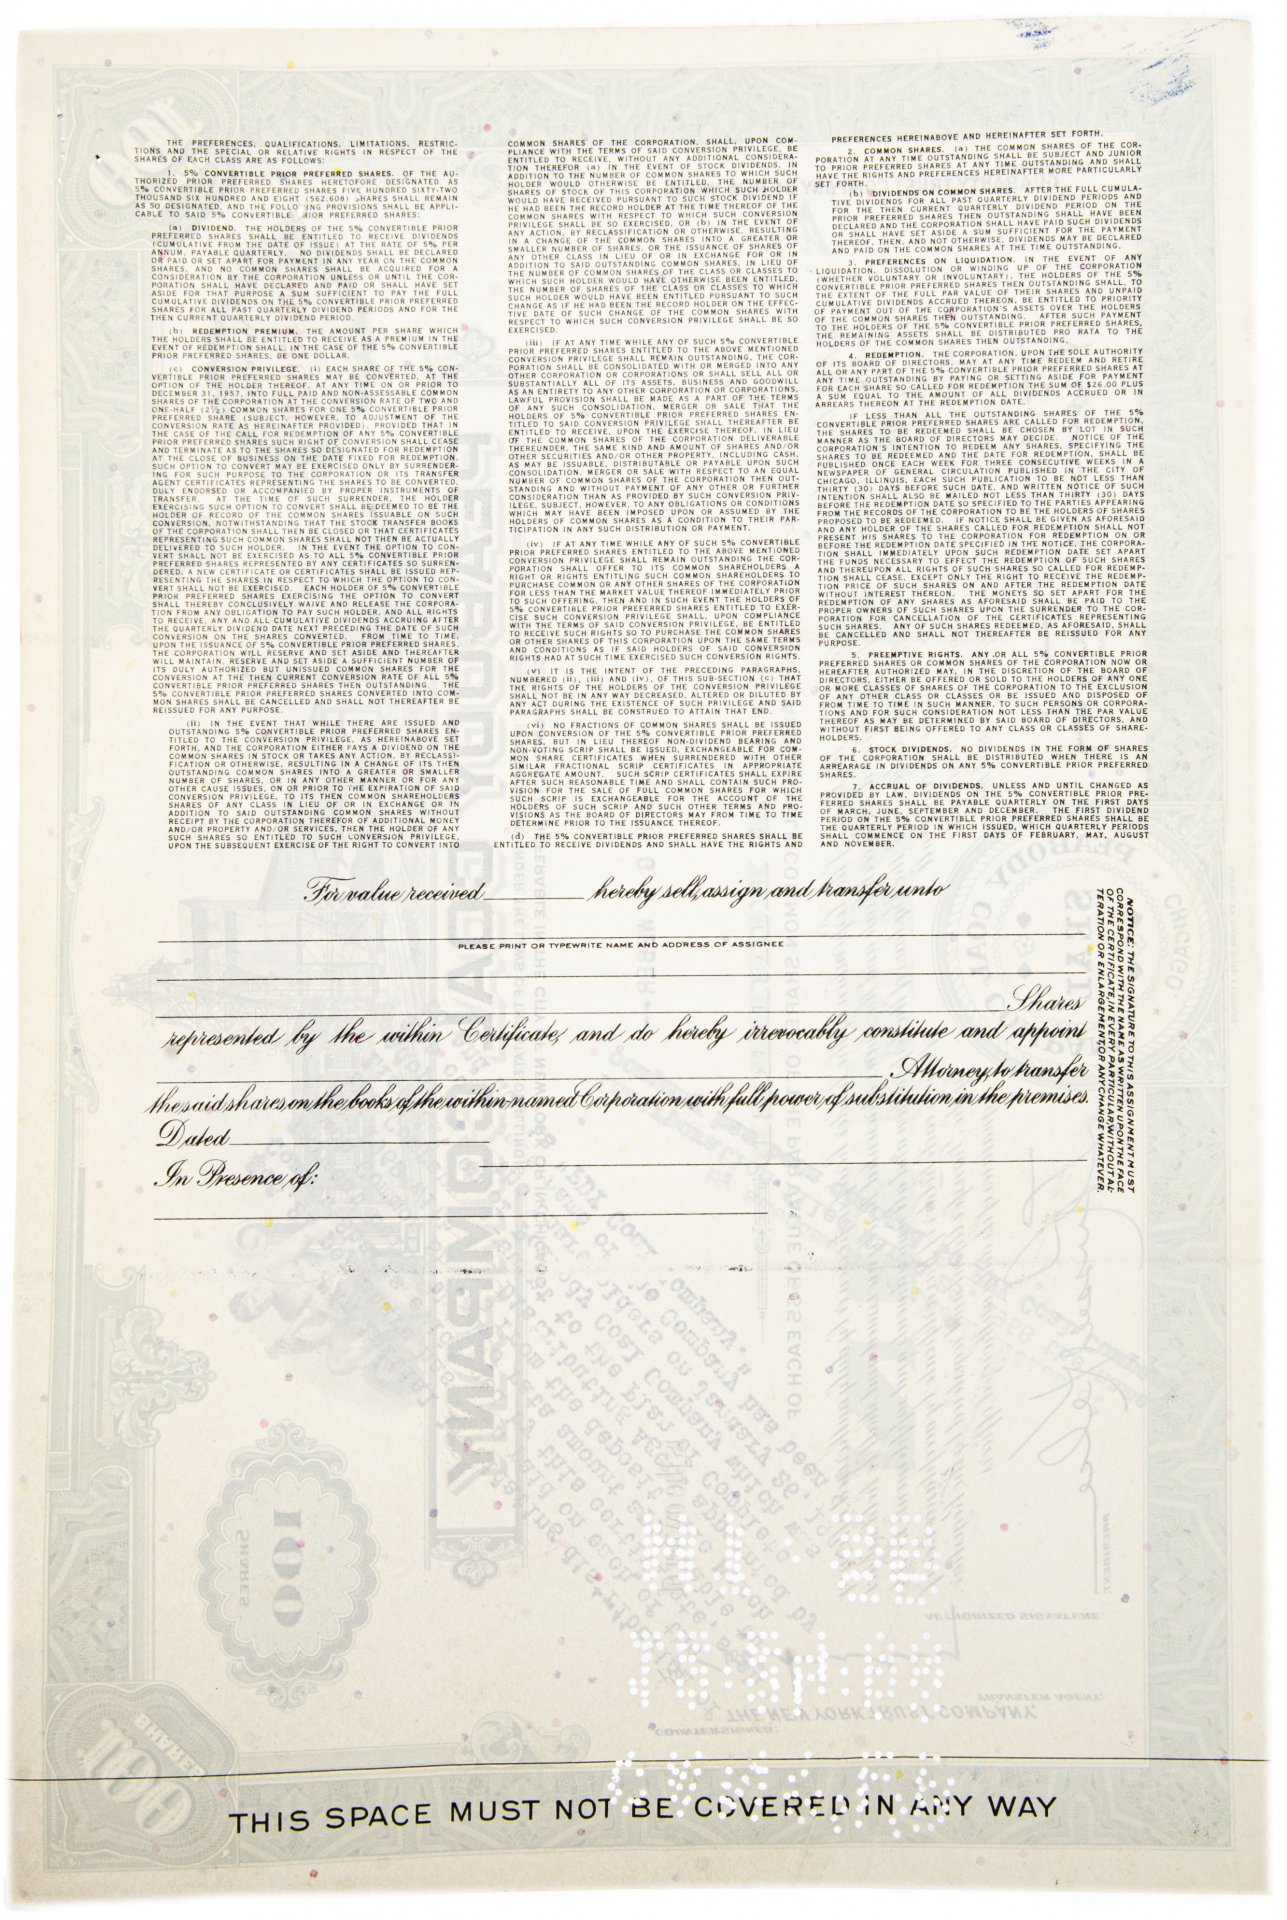 THE PREFERENCES, QUALIFICATIONS, LIMITATIONS, RESTRIC-
TIONS AND THE SPECIAL OR RELATIVE RIGHTS IN RESPECT OF THE
SHARES OF EACH CLASS ARE AS FOLLOWS:
1. 5% CONVERTIBLE PRIOR PREFERRED SHARES. OF THE AU-
THORIZED PRIOR PREFERRED SHARES HERETOFORE DESIGNATED AS
5% CONVERTIBLE PRIOR PREFERRED SHARES FIVE HUNDRED SIXTY-TWO
THOUSAND SIX HUNDRED AND EIGHT (562,608) SHARES SHALL REMAIN
AS SO DESIGNATED, AND THE FOLLO ING PROVISIONS SHALL BE APPLI-
CABLE TO SAID 5% CONVERTIBLE RIOR PREFERRED SHARES:
(a) DIVIDEND. THE HOLDERS OF THE 5% CONVERTIBLE PRIOR
PREFERRED SHARES SHALL BE ENTITLED TO RECEIVE DIVIDENDS
(CUMULATIVE FROM THE DATE OF ISSUE) AT THE RATE OF 5% PER
ANNUM, PAYABLE QUARTERLY. NO DIVIDENDS SHALL BE DECLARED
OR PAID OR SET APART FOR PAYMENT IN ANY YEAR ON THE COMMON
SHARES, AND NO COMMON SHARES SHALL BE ACQUIRED FOR A
CONSIDERATION BY THE CORPORATION UNLESS OR UNTIL THE COR-
PORATION SHALL HAVE DECLARED AND PAID OR SHALL HAVE SET
ASIDE FOR THAT PURPOSE A SUM SUFFICIENT TO PAY THE FULL
CUMULATIVE DIVIDENDS ON THE 5% CONVERTIBLE PRIOR PREFERRED
SHARES FOR ALL PAST QUARTERLY DIVIDEND PERIODS AND FOR THE
THEN CURRENT QUARTERLY DIVIDEND PERIOD.
(b) REDEMPTION PREMIUM. THE AMOUNT PER SHARE WHICH
THE HOLDERS SHALL BE ENTITLED TO RECEIVE AS A PREMIUM IN THE
EVENT OF REDEMPTION SHALL, IN THE CASE OF THE 5% CONVERTIBLE
PRIOR PREFERRED SHARES, BE ONE DOLLAR.
(c) CONVERSION PRIVILEGE. (i) EACH SHARE OF THE 5% CON-
VERTIBLE PRIOR PREFERRED SHARES MAY BE CONVERTED, AT THE
OPTION OF THE HOLDER THEREOF, AT ANY TIME ON OR PRIOR TO
DECEMBER 31, 1957, INTO FULL PAID AND NON-ASSESSABLE COMMON
SHARES OF THE CORPORATION AT THE CONVERSION RATE OF TWO AND
ONE-HALF (2½) COMMON SHARES FOR ONE 5% CONVERTIBLE PRIOR
PREFERRED SHARE (SUBJECT, HOWEVER, TO ADJUSTMENT OF THE
CONVERSION RATE AS HEREINAFTER PROVIDED), PROVIDED THAT IN
THE CASE OF THE CALL FOR REDEMPTION OF ANY 5% CONVERTIBLE
PRIOR PREFERRED SHARES SUCH RIGHT OF CONVERSION SHALL CEASE
AND TERMINATE AS TO THE SHARES SO DESIGNATED FOR REDEMPTION
AT THE CLOSE OF BUSINESS ON THE DATE FIXED FOR REDEMPTION.
SUCH OPTION TO CONVERT MAY BE EXERCISED ONLY BY SURRENDER-
ING FOR SUCH PURPOSE TO THE CORPORATION OR ITS TRANSFER
AGENT CERTIFICATES REPRESENTING THE SHARES TO BE CONVERTED,
DULY ENDORSED OR ACCOMPANIED BY PROPER INSTRUMENTS OF
TRANSFER. AT THE TIME OF SUCH SURRENDER, THE HOLDER
EXERCISING SUCH OPTION TO CONVERT SHALL BE DEEMED TO BE THE
HOLDER OF RECORD OF THE COMMON SHARES ISSUABLE ON SUCH
CONVERSION, NOTWITHSTANDING THAT THE STOCK TRANSFER BOOKS
OF THE CORPORATION SHALL THEN BE CLOSED OR THAT CERTIFICATES
REPRESENTING SUCH COMMON SHARES SHALL NOT THEN BE ACTUALLY
DELIVERED TO SUCH HOLDER. IN THE EVENT THE OPTION TO CON-
VERT SHALL NOT BE EXERCISED AS TO ALL 5% CONVERTIBLE PRIOR
PREFERRED SHARES REPRESENTED BY ANY CERTIFICATES SO SURREN-
DERED, A NEW CERTIFICATE OR CERTIFICATES SHALL BE ISSUED REP-
RESENTING THE SHARES IN RESPECT TO WHICH THE OPTION TO CON-
VERT SHALL NOT BE EXERCISED. EACH HOLDER OF 5% CONVERTIBLE
PRIOR PREFERRED SHARES EXERCISING THE OPTION TO CONVERT
SHALL THEREBY CONCLUSIVELY WAIVE AND RELEASE THE CORPORA-
TION FROM ANY OBLIGATION TO PAY SUCH HOLDER, AND ALL RIGHTS
TO RECEIVE, ANY AND ALL CUMULATIVE DIVIDENDS ACCRUING AFTER
THE QUARTERLY DIVIDEND DATE NEXT PRECEDING THE DATE OF SUCH
CONVERSION ON THE SHARES CONVERTED. FROM TIME TO TIME,
UPON THE ISSUANCE OF 5% CONVERTIBLE PRIOR PREFERRED SHARES,
THE CORPORATION WILL RESERVE AND SET ASIDE AND THEREAFTER
WILL MAINTAIN, RESERVE AND SET ASIDE A SUFFICIENT NUMBER OF
ITS DULY AUTHORIZED BUT UNISSUED COMMON SHARES FOR THE
CONVERSION AT THE THEN CURRENT CONVERSION RATE OF ALL 5%
CONVERTIBLE PRIOR PREFERRED SHARES THEN OUTSTANDING. THE
5% CONVERTIBLE PRIOR PREFERRED SHARES CONVERTED INTO COM-
MON SHARES SHALL BE CANCELLED AND SHALL NOT THEREAFTER BE
REISSUED FOR ANY PURPOSE.
(ii) IN THE EVENT THAT WHILE THERE ARE ISSUED AND
OUTSTANDING 5% CONVERTIBLE PRIOR PREFERRED SHARES EN-
TITLED TO THE CONVERSION PRIVILEGE, AS HEREINABOVE SET
FORTH, AND THE CORPORATION EITHER PAYS A DIVIDEND ON THE
COMMON SHARES IN STOCK OR TAKES ANY ACTION, BY RECLASSI-
FICATION OR OTHERWISE, RESULTING IN A CHANGE OF ITS THEN
OUTSTANDING COMMON SHARES INTO A GREATER OR SMALLER
NUMBER OF SHARES, OR IN ANY OTHER MANNER OR FOR ANY
OTHER CAUSE ISSUES, ON OR PRIOR TO THE EXPIRATION OF SAID
CONVERSION PRIVILEGE, TO ITS THEN COMMON SHAREHOLDERS
SHARES OF ANY CLASS IN LIEU OF OR IN EXCHANGE OR IN
ADDITION TO SAID OUTSTANDING COMMON SHARES, WITHOUT
RECEIPT BY THE CORPORATION THEREFOR OF ADDITIONAL MONEY
AND/OR PROPERTY AND/OR SERVICES, THEN THE HOLDER OF ANY
SUCH SHARES SO ENTITLED TO SUCH CONVERSION PRIVILEGE,
UPON THE SUBSEQUENT EXERCISE OF THE RIGHT TO CONVERT INTO
COMMON SHARES OF THE CORPORATION, SHALL, UPON COM-
PLIANCE WITH THE TERMS OF SAID CONVERSION PRIVILEGE, BE
ENTITLED TO RECEIVE, WITHOUT ANY ADDITIONAL CONSIDERA-
TION THEREFOR (a) IN THE EVENT OF STOCK DIVIDENDS, IN
ADDITION TO THE NUMBER OF COMMON SHARES TO WHICH SUCH
HOLDER WOULD OTHERWISE BE ENTITLED, THE NUMBER OF
SHARES OF STOCK OF THIS CORPORATION WHICH SUCH HOLDER
WOULD HAVE RECEIVED PURSUANT TO SUCH STOCK DIVIDEND IF
HE HAD BEEN THE RECORD HOLDER AT THE TIME THEREOF OF THE
COMMON SHARES WITH RESPECT TO WHICH SUCH CONVERSION
PRIVILEGE SHALL BE SO EXERCISED, OR (b) IN THE EVENT OF
ANY ACTION, BY RECLASSIFICATION, OR OTHERWISE, RESULTING
IN A CHANGE OF THE COMMON SHARES INTO A GREATER OR
SMALLER NUMBER OF SHARES, OR THE ISSUANCE OF SHARES OF
ANY OTHER CLASS IN LIEU OF OR IN EXCHANGE FOR OR IN
ADDITION TO SAID OUTSTANDING COMMON SHARES, IN LIEU OF
THE NUMBER OF COMMON SHARES OF THE CLASS OR CLASSES TO
WHICH SUCH HOLDER WOULD HAVE OTHERWISE BEEN ENTITLED,
THE NUMBER OF SHARES OF THE CLASS OR CLASSES TO WHICH
SUCH HOLDER WOULD HAVE BEEN ENTITLED PURSUANT TO SUCH
CHANGE AS IF HE HAD BEEN THE RECORD HOLDER ON THE EFFEC-
TIVE DATE OF SUCH CHANGE OF THE COMMON SHARES WITH
RESPECT TO WHICH SUCH CONVERSION PRIVILEGE SHALL BE SO
EXERCISED.
(iii) IF AT ANY TIME WHILE ANY OF SUCH 5% CONVERTIBLE
PRIOR PREFERRED SHARES ENTITLED TO THE ABOVE MENTIONED
CONVERSION PRIVILEGE SHALL REMAIN OUTSTANDING, THE COR-
PORATION SHALL BE CONSOLIDATED WITH OR MERGED INTO ANY
OTHER CORPORATION OR CORPORATIONS OR SHALL SELL ALL OR
SUBSTANTIALLY ALL OF ITS ASSETS, BUSINESS AND GOODWILL
AS AN ENTIRETY TO ANY OTHER CORPORATION OR CORPORATIONS,
LAWFUL PROVISION SHALL BE MADE AS A PART OF THE TERMS
OF ANY SUCH CONSOLIDATION, MERGER OR SALE THAT THE
HOLDERS OF 5% CONVERTIBLE PRIOR PREFERRED SHARES EN-
TITLED TO SAID CONVERSION PRIVILEGE SHALL THEREAFTER BE
ENTITLED TO RECEIVE, UPON THE EXERCISE THEREOF, IN LIEU
OF THE COMMON SHARES OF THE CORPORATION DELIVERABLE
THEREUNDER, THE SAME KIND AND AMOUNT OF SHARES AND/OR
OTHER SECURITIES AND/OR OTHER PROPERTY, INCLUDING CASH,
AS MAY BE ISSUABLE, DISTRIBUTABLE OR PAYABLE UPON SUCH
CONSOLIDATION, MERGER OR SALE WITH RESPECT TO AN EQUAL
NUMBER OF COMMON SHARES OF THE CORPORATION THEN OUT-
STANDING AND WITHOUT PAYMENT OF ANY OTHER OR FURTHER
CONSIDERATION THAN AS PROVIDED BY SUCH CONVERSION PRIV-
ILEGE, SUBJECT, HOWEVER, TO ANY OBLIGATIONS OR CONDITIONS
WHICH MAY HAVE BEEN IMPOSED UPON OR ASSUMED BY THE
HOLDERS OF COMMON SHARES AS A CONDITION TO THEIR PAR-
TICIPATION IN ANY SUCH DISTRIBUTION OR PAYMENT.
(iv) IF AT ANY TIME WHILE ANY OF SUCH 5% CONVERTIBLE
PRIOR PREFERRED SHARES ENTITLED TO THE ABOVE MENTIONED
CONVERSION PRIVILEGE SHALL REMAIN OUTSTANDING THE COR-
PORATION SHALL OFFER TO ITS COMMON SHAREHOLDERS A
RIGHT OR RIGHTS ENTITLING SUCH COMMON SHAREHOLDERS TO
PURCHASE COMMON OR ANY OTHER SHARES OF THE CORPORATION
FOR LESS THAN THE MARKET VALUE THEREOF IMMEDIATELY PRIOR
TO SUCH OFFERING, THEN AND IN SUCH EVENT THE HOLDERS OF
5% CONVERTIBLE PRIOR PREFERRED SHARES ENTITLED TO EXER-
CISE SUCH CONVERSION PRIVILEGE SHALL, UPON COMPLIANCE
WITH THE TERMS OF SAID CONVERSION PRIVILEGE, BE ENTITLED
TO RECEIVE SUCH RIGHTS SO TO PURCHASE THE COMMON SHARES
OR OTHER SHARES OF THIS CORPORATION UPON THE SAME TERMS
AND CONDITIONS AS IF SAID HOLDERS OF SAID CONVERSION
RIGHTS HAD AT SUCH TIME EXERCISED SUCH CONVERSION RIGHTS.
(v) IT IS THE INTENT OF THE PRECEDING PARAGRAPHS,
NUMBERED (ii), (iii) AND (iv), OF THIS SUB-SECTION (c) THAT
THE RIGHTS OF THE HOLDERS OF THE CONVERSION PRIVILEGE
SHALL NOT BE IN ANY WAY DECREASED, ALTERED OR DILUTED BY
ANY ACT DURING THE EXISTENCE OF SUCH PRIVILEGE AND SAID
PARAGRAPHS SHALL BE CONSTRUED TO ATTAIN THAT END.
(vi) NO FRACTIONS OF COMMON SHARES SHALL BE ISSUED
UPON CONVERSION OF THE 5% CONVERTIBLE PRIOR PREFERRED
SHARES, BUT IN LIEU THEREOF NON-DIVIDEND BEARING AND
NON-VOTING SCRIP SHALL BE ISSUED, EXCHANGEABLE FOR COM-
MON SHARE CERTIFICATES WHEN SURRENDERED WITH OTHER
SIMILAR FRACTIONAL SCRIP CERTIFICATES IN APPROPRIATE
AGGREGATE AMOUNT. SUCH SCRIP CERTIFICATES SHALL EXPIRE
AFTER SUCH REASONABLE TIME AND SHALL CONTAIN SUCH PRO-
VISION FOR THE SALE OF FULL COMMON SHARES FOR WHICH
SUCH SCRIP IS EXCHANGEABLE FOR THE ACCOUNT OF THE
HOLDERS OF SUCH SCRIP AND SUCH OTHER TERMS AND PRO-
VISIONS AS THE BOARD OF DIRECTORS MAY FROM TIME TO TIME
DETERMINE PRIOR TO THE ISSUANCE THEREOF.
(d) THE 5% CONVERTIBLE PRIOR PREFERRED SHARES SHALL BE
ENTITLED TO RECEIVE DIVIDENDS AND SHALL HAVE THE RIGHTS AND
PREFERENCES HEREINABOVE AND HEREINAFTER SET FORTH.
2. COMMON SHARES. (a) THE COMMON SHARES OF THE COR-
PORATION AT ANY TIME OUTSTANDING SHALL BE SUBJECT AND JUNIOR
TO PRIOR PREFERRED SHARES AT ANY TIME OUTSTANDING AND SHALL
HAVE THE RIGHTS AND PREFERENCES HEREINAFTER MORE PARTICULARLY
SET FORTH.
(b) DIVIDENDS ON COMMON SHARES. AFTER THE FULL CUMULA-
TIVE DIVIDENDS FOR ALL PAST QUARTERLY DIVIDEND PERIODS AND
FOR THE THEN CURRENT QUARTERLY DIVIDEND PERIOD ON THE
PRIOR PREFERRED SHARES THEN OUTSTANDING SHALL HAVE BEEN
DECLARED AND THE CORPORATION SHALL HAVE PAID SUCH DIVIDENDS
OR SHALL HAVE SET ASIDE A SUM SUFFICIENT FOR THE PAYMENT
THEREOF, THEN, AND NOT OTHERWISE, DIVIDENDS MAY BE DECLARED
AND PAID ON THE COMMON SHARES AT THE TIME OUTSTANDING.
3. PREFERENCES ON LIQUIDATION. IN THE EVENT OF ANY
LIQUIDATION, DISSOLUTION OR WINDING UP OF THE CORPORATION
(WHETHER VOLUNTARY OR INVOLUNTARY), THE HOLDERS OF THE 5%
CONVERTIBLE PRIOR PREFERRED SHARES THEN OUTSTANDING SHALL, TO
THE EXTENT OF THE FULL PAR VALUE OF THEIR SHARES AND UNPAID
CUMULATIVE DIVIDENDS ACCRUED THEREON, BE ENTITLED TO PRIORITY
OF PAYMENT OUT OF THE CORPORATION'S ASSETS OVER THE HOLDERS
OF THE COMMON SHARES THEN OUTSTANDING. AFTER SUCH PAYMENT
TO THE HOLDERS OF THE 5% CONVERTIBLE PRIOR PREFERRED SHARES,
THE REMAINING ASSETS SHALL BE DISTRIBUTED PRO RATA TO THE
HOLDERS OF THE COMMON SHARES THEN OUTSTANDING.
4. REDEMPTION. THE CORPORATION, UPON THE SOLE AUTHORITY
OF ITS BOARD OF DIRECTORS, MAY AT ANY TIME REDEEM AND RETIRE
ALL OR ANY PART OF THE 5% CONVERTIBLE PRIOR PREFERRED SHARES AT
ANY TIME OUTSTANDING BY PAYING OR SETTING ASIDE FOR PAYMENT
FOR EACH SHARE SO CALLED FOR REDEMPTION THE SUM OF $26.00 PLUS
A SUM EQUAL TO THE AMOUNT OF ALL DIVIDENDS ACCRUED OR IN
ARREARS THEREON AT THE REDEMPTION DATE.
IF LESS THAN ALL THE OUTSTANDING SHARES OF THE 5%
CONVERTIBLE PRIOR PREFERRED SHARES ARE CALLED FOR REDEMPTION,
THE SHARES TO BE REDEEMED SHALL BE CHOSEN BY LOT IN SUCH
MANNER AS THE BOARD OF DIRECTORS MAY DECIDE. NOTICE OF THE
CORPORATION'S INTENTION TO REDEEM ANY SHARES, SPECIFYING THE
SHARES TO BE REDEEMED AND THE DATE FOR REDEMPTION, SHALL BE
PUBLISHED ONCE EACH WEEK FOR THREE CONSECUTIVE WEEKS IN A
NEWSPAPER OF GENERAL CIRCULATION PUBLISHED IN THE CITY OF
CHICAGO, ILLINOIS, EACH SUCH PUBLICATION TO BE NOT LESS THAN
THIRTY (30) DAYS BEFORE SUCH DATE, AND WRITTEN NOTICE OF SUCH
INTENTION SHALL ALSO BE MAILED NOT LESS THAN THIRTY (30) DAYS
BEFORE THE REDEMPTION DATE SO SPECIFIED TO THE PARTIES APPEARING
FROM THE RECORDS OF THE CORPORATION TO BE THE HOLDERS OF SHARES
PROPOSED TO BE REDEEMED. IF NOTICE SHALL BE GIVEN AS AFORESAID
AND ANY HOLDER OF THE SHARES CALLED FOR REDEMPTION SHALL NOT
PRESENT HIS SHARES TO THE CORPORATION FOR REDEMPTION ON OR
BEFORE THE REDEMPTION DATE SPECIFIED IN THE NOTICE, THE CORPORA-
TION SHALL IMMEDIATELY UPON SUCH REDEMPTION DATE SET APART
THE FUNDS NECESSARY TO EFFECT THE REDEMPTION OF SUCH SHARES
AND THEREUPON ALL RIGHTS OF SUCH SHARES SO CALLED FOR REDEMP-
TION SHALL CEASE, EXCEPT ONLY THE RIGHT TO RECEIVE THE REDEMP-
TION PRICE OF SUCH SHARES ON AND AFTER THE REDEMPTION DATE
WITHOUT INTEREST THEREON. THE MONEYS SO SET APART FOR THE
REDEMPTION OF ANY SHARES AS AFORESAID SHALL BE PAID TO THE
PROPER OWNERS OF SUCH SHARES UPON THE SURRENDER TO THE COR-
PORATION FOR CANCELLATION OF THE CERTIFICATES REPRESENTING
SUCH SHARES. ANY OF SUCH SHARES REDEEMED, AS AFORESAID, SHALL
BE CANCELLED AND SHALL NOT THEREAFTER BE REISSUED FOR ANY
PURPOSE.
5. PREEMPTIVE RIGHTS. ANY OR ALL 5% CONVERTIBLE PRIOR
PREFERRED SHARES OR COMMON SHARES OF THE CORPORATION NOW OR
HEREAFTER AUTHORIZED MAY, IN THE DISCRETION OF THE BOARD OF
DIRECTORS, EITHER BE OFFERED OR SOLD TO THE HOLDERS OF ANY ONE
OR MORE CLASSES OF SHARES OF THE CORPORATION TO THE EXCLUSION
OF ANY OTHER CLASS OR CLASSES OR BE ISSUED AND DISPOSED OF
FROM TIME TO TIME IN SUCH MANNER, TO SUCH PERSONS OR CORPORA-
TIONS AND FOR SUCH CONSIDERATION NOT LESS THAN THE PAR VALUE
THEREOF AS MAY BE DETERMINED BY SAID BOARD OF DIRECTORS, AND
WITHOUT FIRST BEING OFFERED TO ANY CLASS OR CLASSES OF SHARE-
HOLDERS.
6. STOCK DIVIDENDS. NO DIVIDENDS IN THE FORM OF SHARES
OF THE CORPORATION SHALL BE DISTRIBUTED WHEN THERE IS AN
ARREARAGE IN DIVIDENDS ON ANY 5% CONVERTIBLE PRIOR PREFERRED
SHARES.
7. ACCRUAL OF DIVIDENDS. UNLESS AND UNTIL CHANGED AS
PROVIDED BY LAW, DIVIDENDS ON THE 5% CONVERTIBLE PRIOR PRE-
FERRED SHARES SHALL BE PAYABLE QUARTERLY ON THE FIRST DAYS
OF MARCH, JUNE, SEPTEMBER AND DECEMBER. THE FIRST DIVIDEND
PERIOD ON THE 5% CONVERTIBLE PRIOR PREFERRED SHARES SHALL BE
THE QUARTERLY PERIOD IN WHICH ISSUED, WHICH QUARTERLY PERIODS
SHALL COMMENCE ON THE FIRST DAYS OF FEBRUARY, MAY, AUGUST
AND NOVEMBER.
For value received hereby sell, assign and transfer unto
PLEASE PRINT OR TYPEWRITE NAME AND ADDRESS OF ASSIGNEE
Shares
represented by the within Certificate, and do hereby irrevocably constitute and appoint
Attorney, to transfer
the said shares on the books of the within-named Corporation with full power of substitution in the premises.
Dated
In Presence of:
NOTICE: THE SIGNATURE TO THIS ASSIGNMENT MUST
CORRESPOND WITH THE NAME AS WRITTEN UPON THE FACE
OF THE CERTIFICATE, IN EVERY PARTICULAR, WITHOUT AL-
TERATION OR ENLARGEMENT, OR ANY CHANGE WHATEVER.
THIS SPACE MUST NOT BE COVERED IN ANY WAY